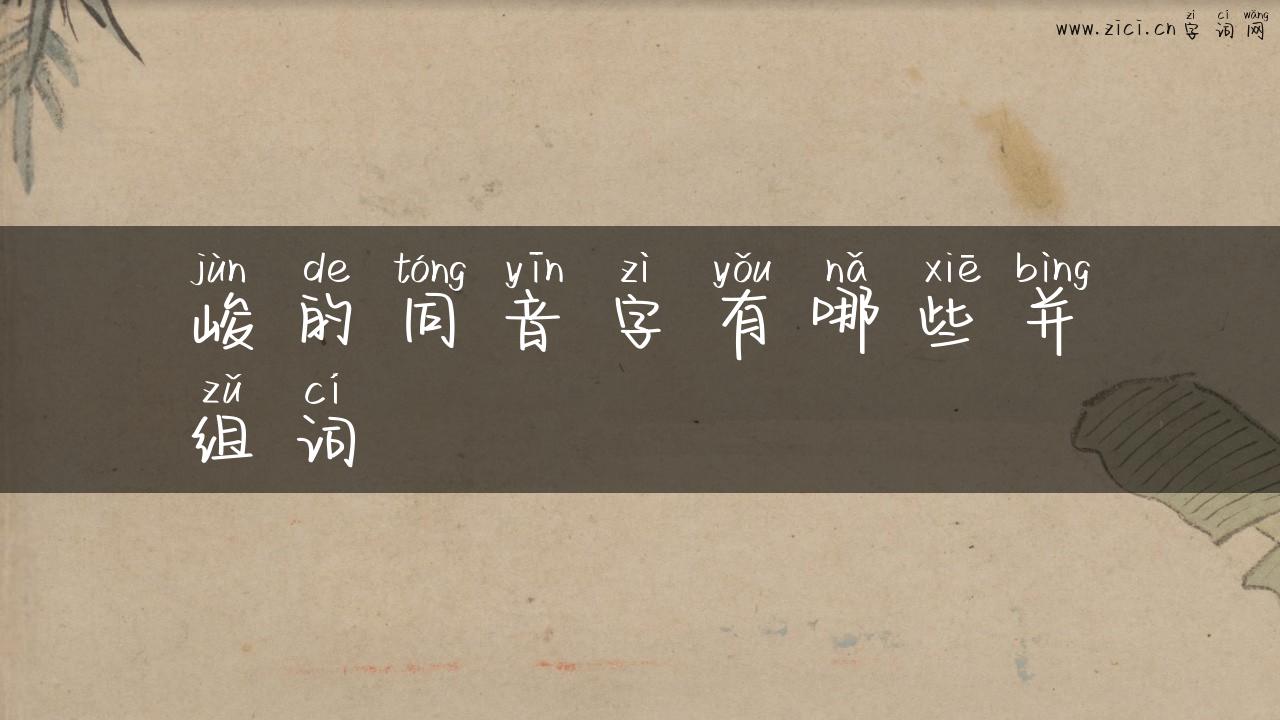 zì cí wǎng
www.zici.cn 字词网
jùn de tóng yīn zì yǒu nǎ xiē bìng
峻的同音字有哪些并
zǔ cí
组词